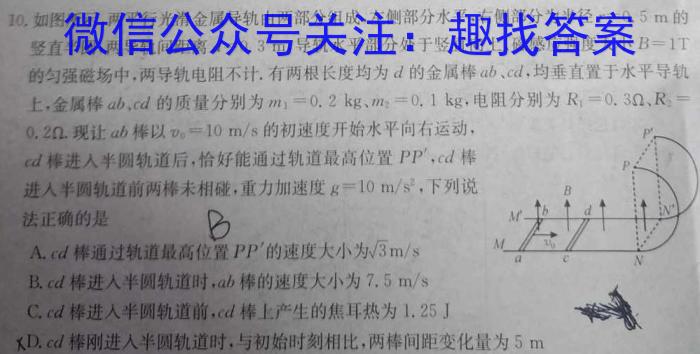 10.如图 两平行光滑金属导轨由两部分组成 左侧部分水平 5 m的
微信公众号关注：趣找答案
竖直 B=1T
的匀强磁场中,两导轨电阻不计.有两根长度均为d的金属棒ab、cd,均垂直置于水平导轨
上,金属棒ab、cd的质量分别为m₁=0.2 kg、m₂=0.1 kg,电阻分别为R₁=0.3Ω、R₂=
0.2Ω.现让ab棒以v₀=10 m/s的初速度开始水平向右运动,
cd棒进入半圆轨道后,恰好能通过轨道最高位置PP′,cd棒
进入半圆轨道前两棒未相碰,重力加速度g=10 m/s²,下列说
法正确的是
B
A. cd棒通过轨道最高位置PP′的速度大小为√3 m/s
B. cd棒进入半圆轨道时,ab棒的速度大小为7.5 m/s
C. cd棒进入半圆轨道前,cd棒上产生的焦耳热为1.25 J
×D. cd棒刚进入半圆轨道时,与初始时刻相比,两棒间距变化量为5 m
P′
P
B
M′ b d N′
M v₀
a c N